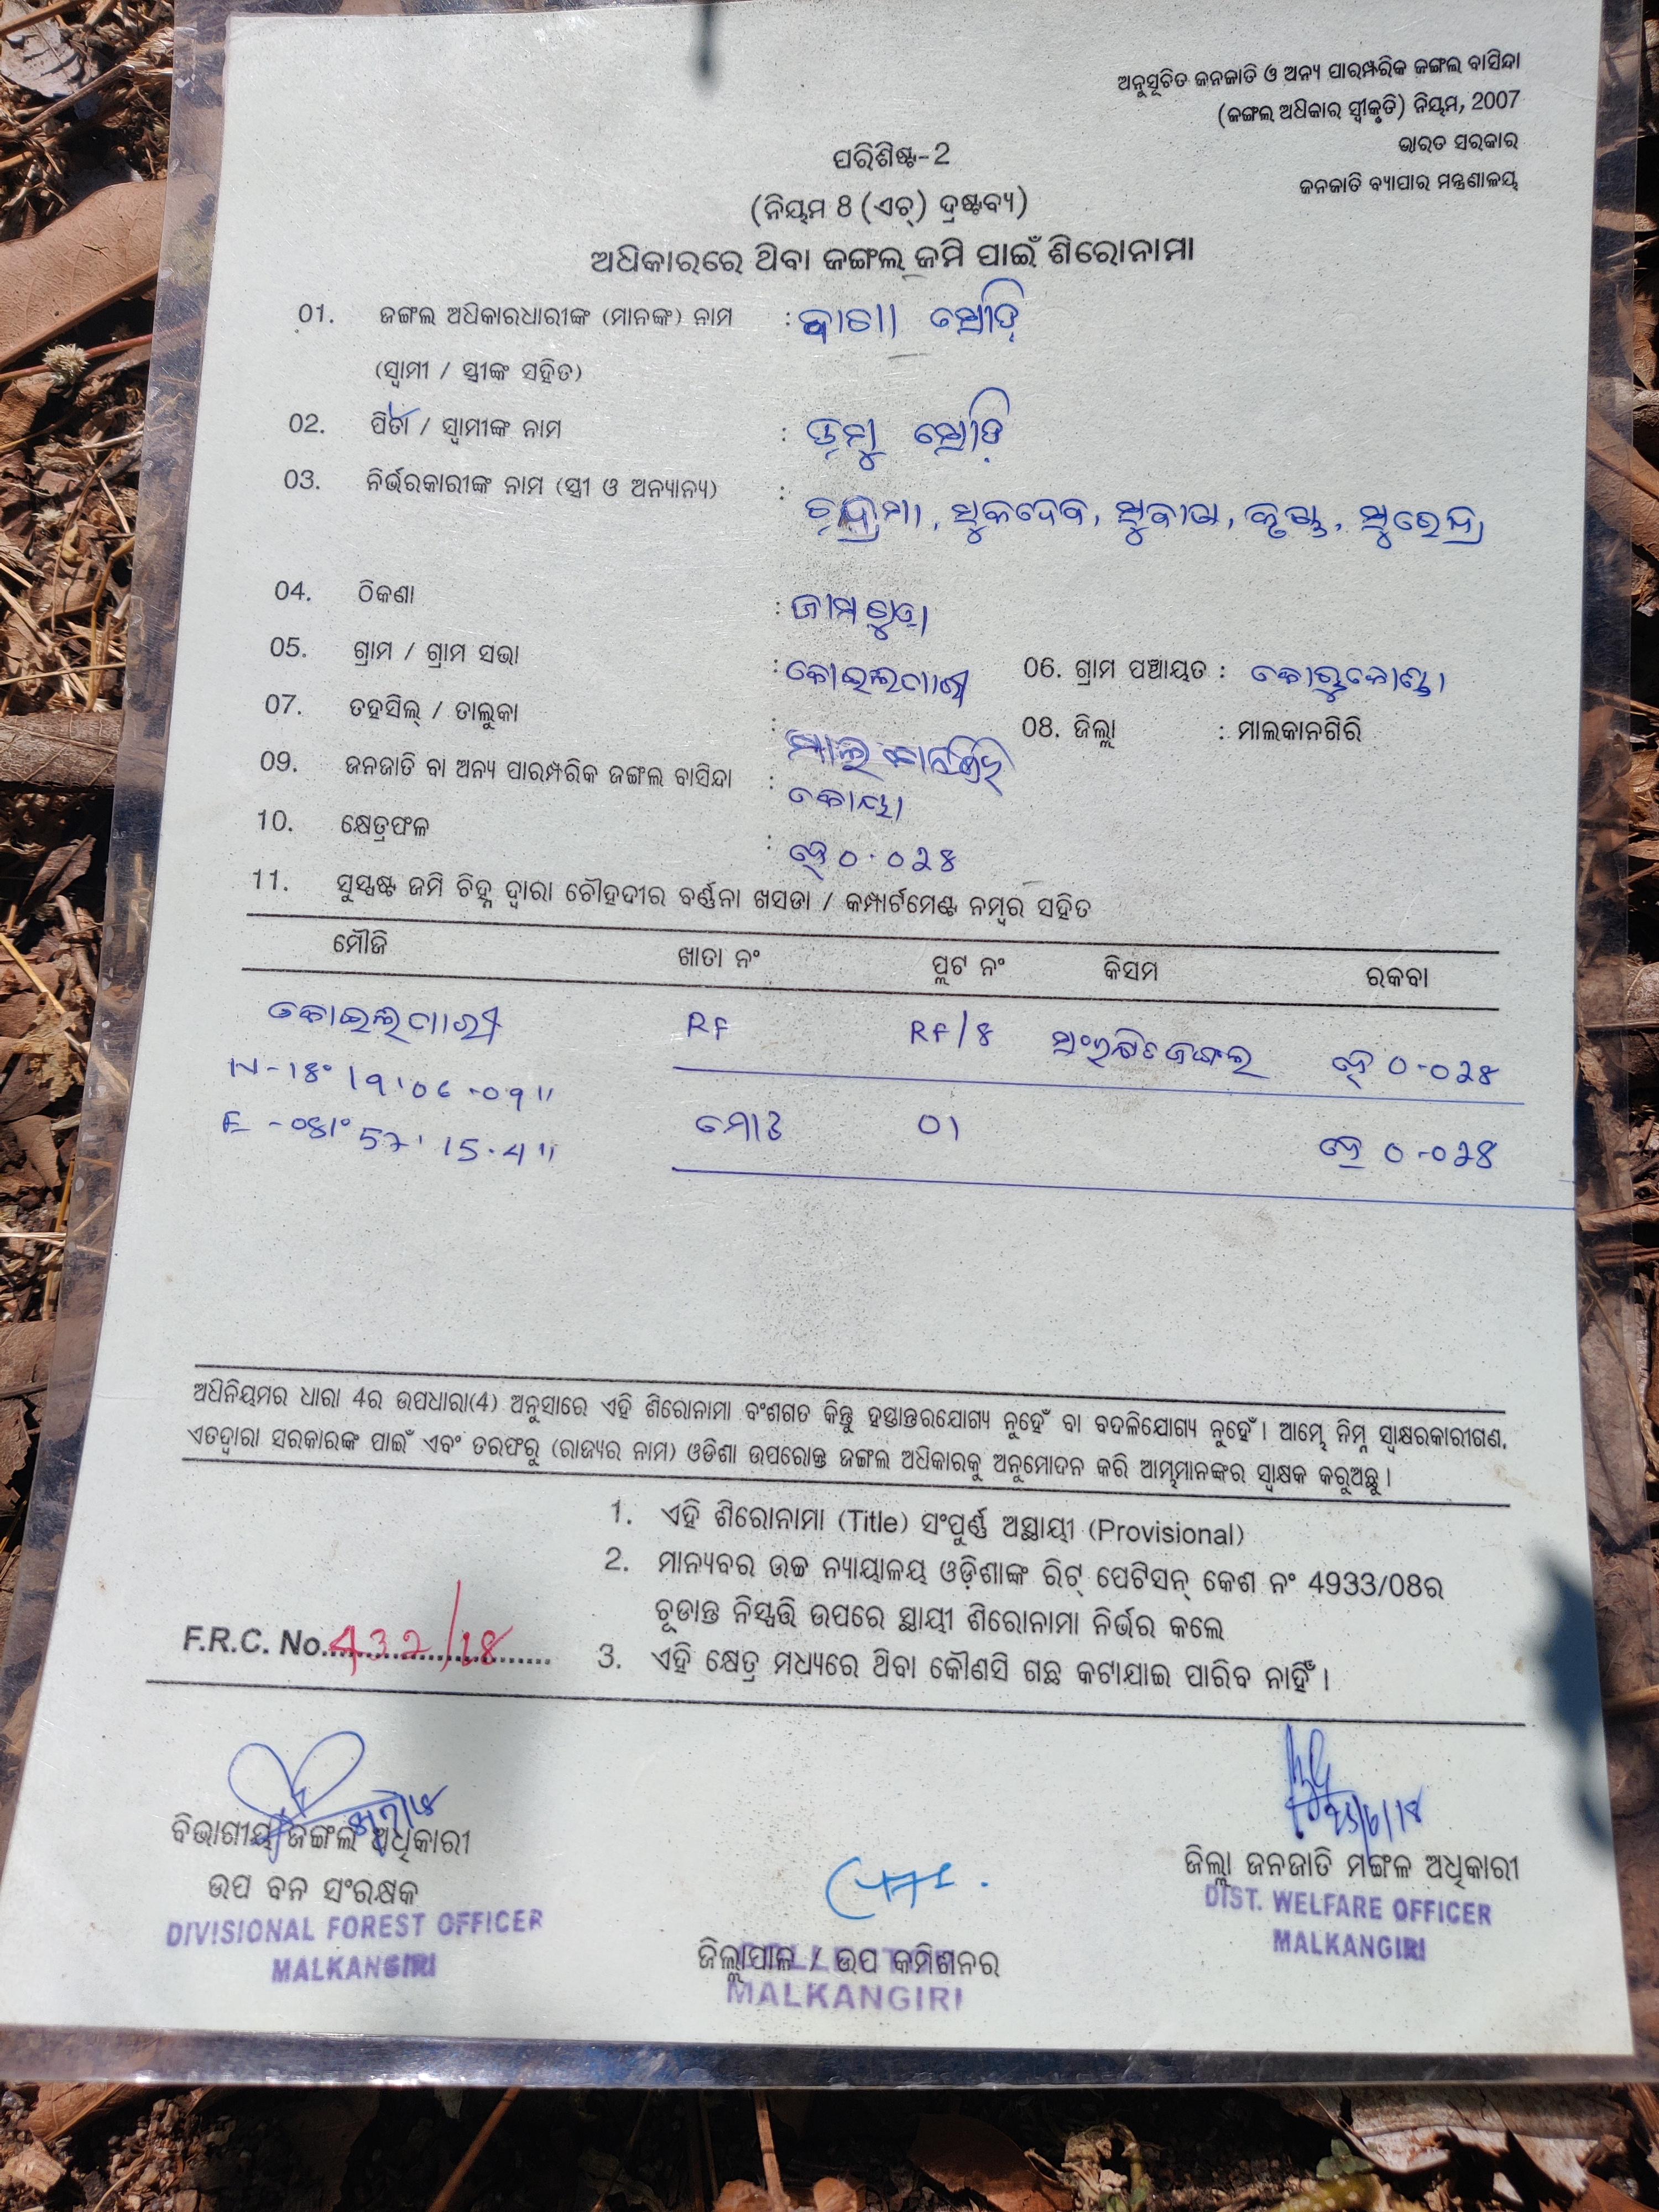 ଅନୁସୂଚିତ ଜନଜାତି ଓ ଅନ୍ୟ ପାରମ୍ପରିକ ଜଙ୍ଗଲ ବାସିନ୍ଦା
(ଜଙ୍ଗଲ ଅଧିକାର ସ୍ୱୀକୃତି) ନିୟମ, 2007
ଭାରତ ସରକାର
ଜନଜାତି ବ୍ୟାପାର ମନ୍ତ୍ରଣାଳୟ
ପରିଶିଷ୍ଟ-2
(ନିୟମ 8 (ଏଚ୍) ଦ୍ରଷ୍ଟବ୍ୟ)
ଅଧିକାରରେ ଥିବା ଜଙ୍ଗଲ ଜମି ପାଇଁ ଶିରୋନାମା
01. ଜଙ୍ଗଲ ଅଧିକାରଧାରୀଙ୍କ (ମାନଙ୍କ) ନାମ :
(ସ୍ୱାମୀ / ସ୍ତ୍ରୀଙ୍କ ସହିତ)
02. ପିତା / ସ୍ୱାମୀଙ୍କ ନାମ :
03. ନିର୍ଭରକାରୀଙ୍କ ନାମ (ସ୍ତ୍ରୀ ଓ ଅନ୍ୟାନ୍ୟ) : ଚନ୍ଦ୍ରମା, ସୁକଦେବ, କୃଷ୍ଣ, ସୁରେନ୍ଦ୍ର
04. ଠିକଣା :
05. ଗ୍ରାମ / ଗ୍ରାମ ସଭା : 06. ଗ୍ରାମ ପଞ୍ଚାୟତ : କୋରୁକୋଣ୍ଡା
07. ତହସିଲ୍ / ତାଲୁକା : 08. ଜିଲ୍ଲା : ମାଲକାନଗିରି
09. ଜନଜାତି ବା ଅନ୍ୟ ପାରମ୍ପରିକ ଜଙ୍ଗଲ ବାସିନ୍ଦା : କୋୟା
10. କ୍ଷେତ୍ରଫଳ : ହେ ୦.୦୨୫
11. ସୁସ୍ପଷ୍ଟ ଜମି ଚିହ୍ନ ଦ୍ୱାରା ଚୌହଦୀର ବର୍ଣ୍ଣନା ଖସଡା / କମ୍ପାର୍ଟମେଣ୍ଟ ନମ୍ବର ସହିତ
ମୌଜି ଖାତା ନଂ ପ୍ଲଟ ନଂ କିସମ ରକବା
RF ସଂରକ୍ଷିତ ଜଙ୍ଗଲ ହେ ୦.୦୨୫
ମୋଟ ୦୧ ହେ ୦.୦୨୫
ଅଧିନିୟମର ଧାରା 4ର ଉପଧାରା(4) ଅନୁସାରେ ଏହି ଶିରୋନାମା ବଂଶଗତ କିନ୍ତୁ ହସ୍ତାନ୍ତରଯୋଗ୍ୟ ନୁହେଁ ବା ବଦଳିଯୋଗ୍ୟ ନୁହେଁ। ଆମ୍ଭେ ନିମ୍ନ ସ୍ୱାକ୍ଷରକାରୀଗଣ,
ଏତଦ୍ୱାରା ସରକାରଙ୍କ ପାଇଁ ଏବଂ ତରଫରୁ (ରାଜ୍ୟର ନାମ) ଓଡିଶା ଉପରୋକ୍ତ ଜଙ୍ଗଲ ଅଧିକାରକୁ ଅନୁମୋଦନ କରି ଆମ୍ଭମାନଙ୍କର ସ୍ୱାକ୍ଷକ କରୁଅଛୁ।
1. ଏହି ଶିରୋନାମା (Title) ସଂପୁର୍ଣ୍ଣ ଅସ୍ଥାୟୀ (Provisional)
2. ମାନ୍ୟବର ଉଚ୍ଚ ନ୍ୟାୟାଳୟ ଓଡ଼ିଶାଙ୍କ ରିଟ୍ ପେଟିସନ୍ କେଶ ନଂ 4933/08ର
ଚୂଡାନ୍ତ ନିସ୍ପତ୍ତି ଉପରେ ସ୍ଥାୟୀ ଶିରୋନାମା ନିର୍ଭର କଲେ
F.R.C. No. 432/18
3. ଏହି କ୍ଷେତ୍ର ମଧ୍ୟରେ ଥିବା କୌଣସି ଗଛ କଟାଯାଇ ପାରିବ ନାହିଁ।
ବିଭାଗୀୟ ଜଙ୍ଗଲ ଅଧିକାରୀ
ଉପ ବନ ସଂରକ୍ଷକ
DIVISIONAL FOREST OFFICER
MALKANGIRI
ଜିଲ୍ଲାପାଳ / ଉପ କମିଶନର
COLLECTOR
MALKANGIRI
25/6/18
ଜିଲ୍ଲା ଜନଜାତି ମଙ୍ଗଳ ଅଧିକାରୀ
DIST. WELFARE OFFICER
MALKANGIRI